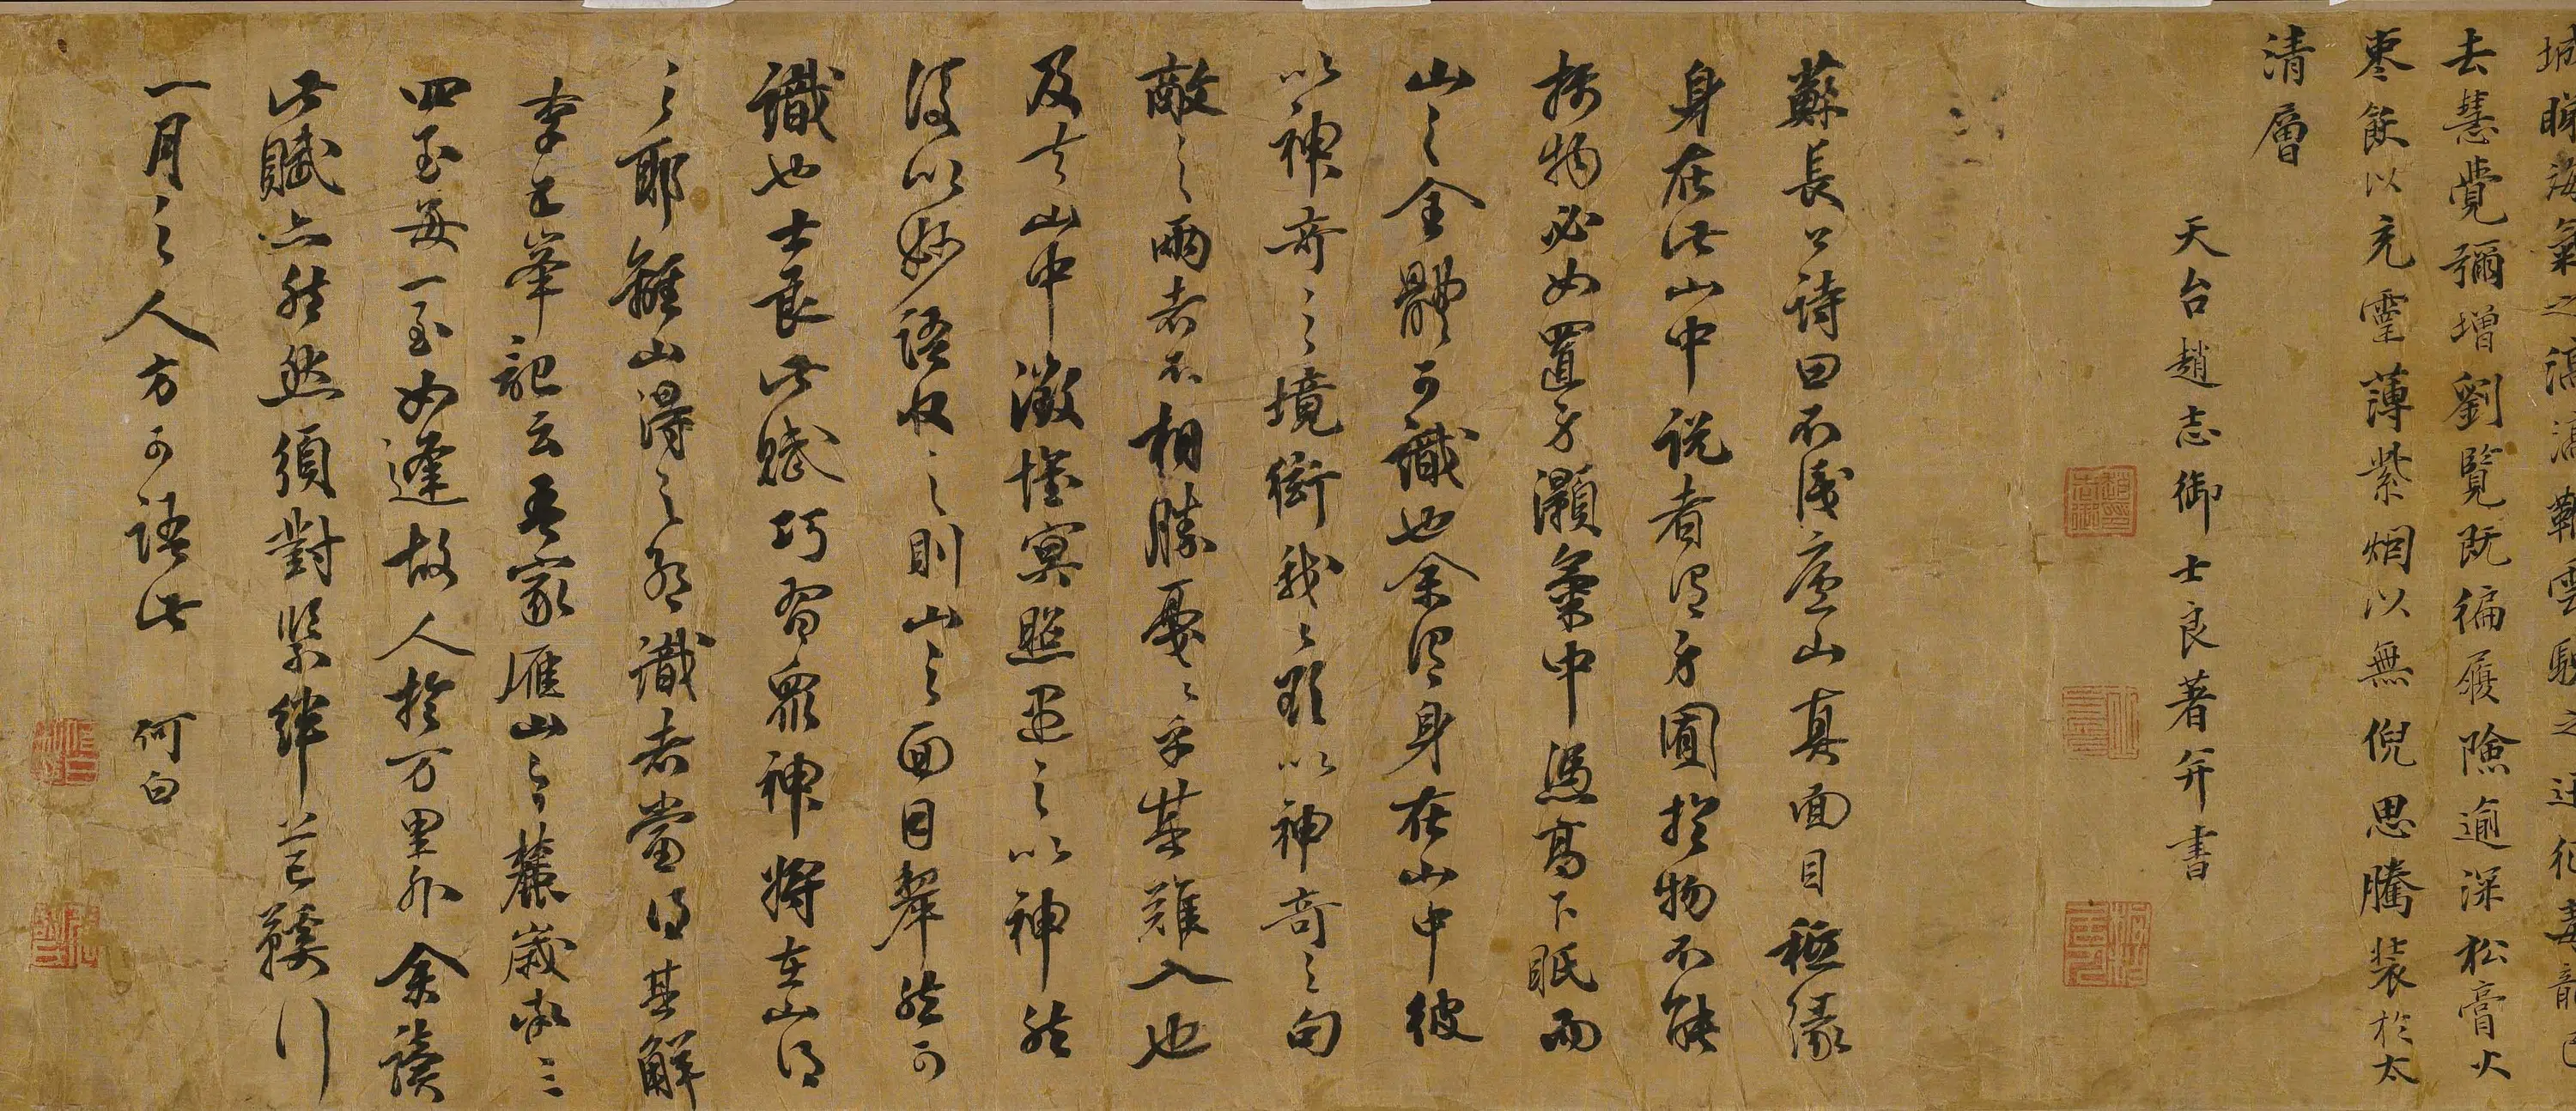 去慧覺彌增劉覽既徧履險逾深松膏火
棗飲以充霊薄紫烟以無倪思騰裝於太
清層
天台趙志御士良著并書
蘇長公詩曰不識廬山真面目秖緣
身在此山中說者謂方圓於物不能
物必如置身灝氣中憑高下眂而
山之全體可識也余謂身在山中彼
以神奇之境銜我我以神奇之句
敵之兩者不相勝戛戛乎其難入也
及去山中澂懷冥照之以神然
後以妙語收之則山之面目舉然可
識也士良此賦巧習眾神將在山得
之耶離山得之耶識者當得其解
李五峯記云吾家雁山之麓歲率三
四至每一至如逢故人於万里外余讀
此賦亦然然須對緊絆芒鞵行
一月之人方可語此 何白